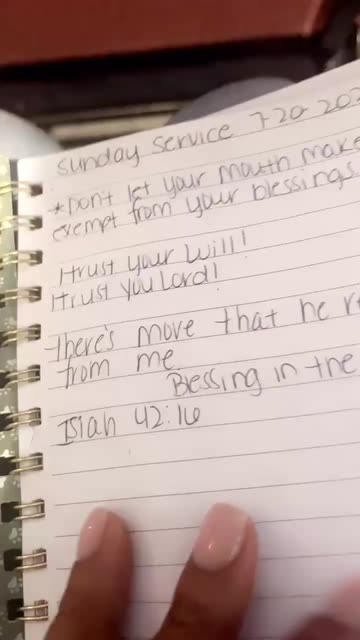 Sunday Service 7-20-202
*Don't let your mouth make
exempt from your blessings.
I trust your will!
I trust you Lord!
There's move that he
from me
Blessing in the
Isiah 42:16